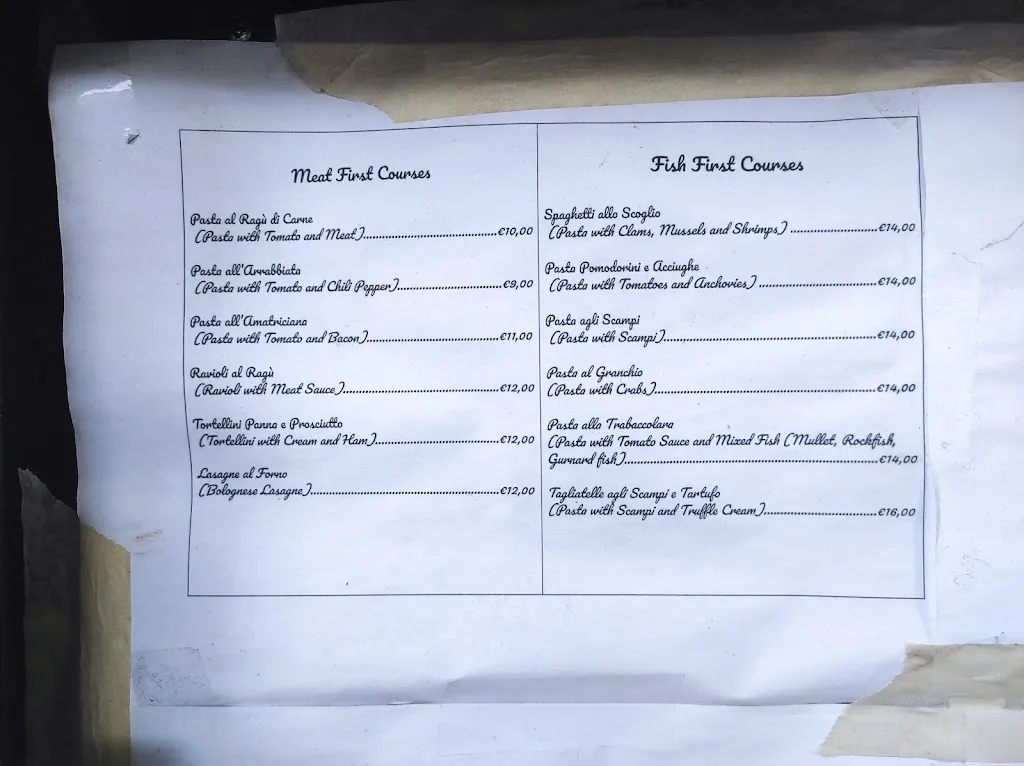 Meat First Courses
Pasta al Ragù di Carne
(Pasta with Tomato and Meat)..........€10,00
Pasta all'Arrabbiata
(Pasta with Tomato and Chili Pepper)..........€9,00
Pasta all'Amatriciana
(Pasta with Tomato and Bacon)..........€11,00
Ravioli al Ragù
(Ravioli with Meat Sauce)..........€12,00
Tortellini Panna e Prosciutto
(Tortellini with Cream and Ham)..........€12,00
Lasagne al Forno
(Bolognese Lasagne)..........€12,00
Fish First Courses
Spaghetti allo Scoglio
(Pasta with Clams, Mussels and Shrimps) ..........€14,00
Pasta Pomodorini e Acciughe
(Pasta with Tomatoes and Anchovies) ..........€14,00
Pasta agli Scampi
(Pasta with Scampi)..........€14,00
Pasta al Granchio
(Pasta with Crabs)..........€14,00
Pasta alla Trabaccolara
(Pasta with Tomato Sauce and Mixed Fish (Mullet, Rockfish,
Gurnard fish)..........€14,00
Tagliatelle agli Scampi e Tartufo
(Pasta with Scampi and Truffle Cream)..........€16,00